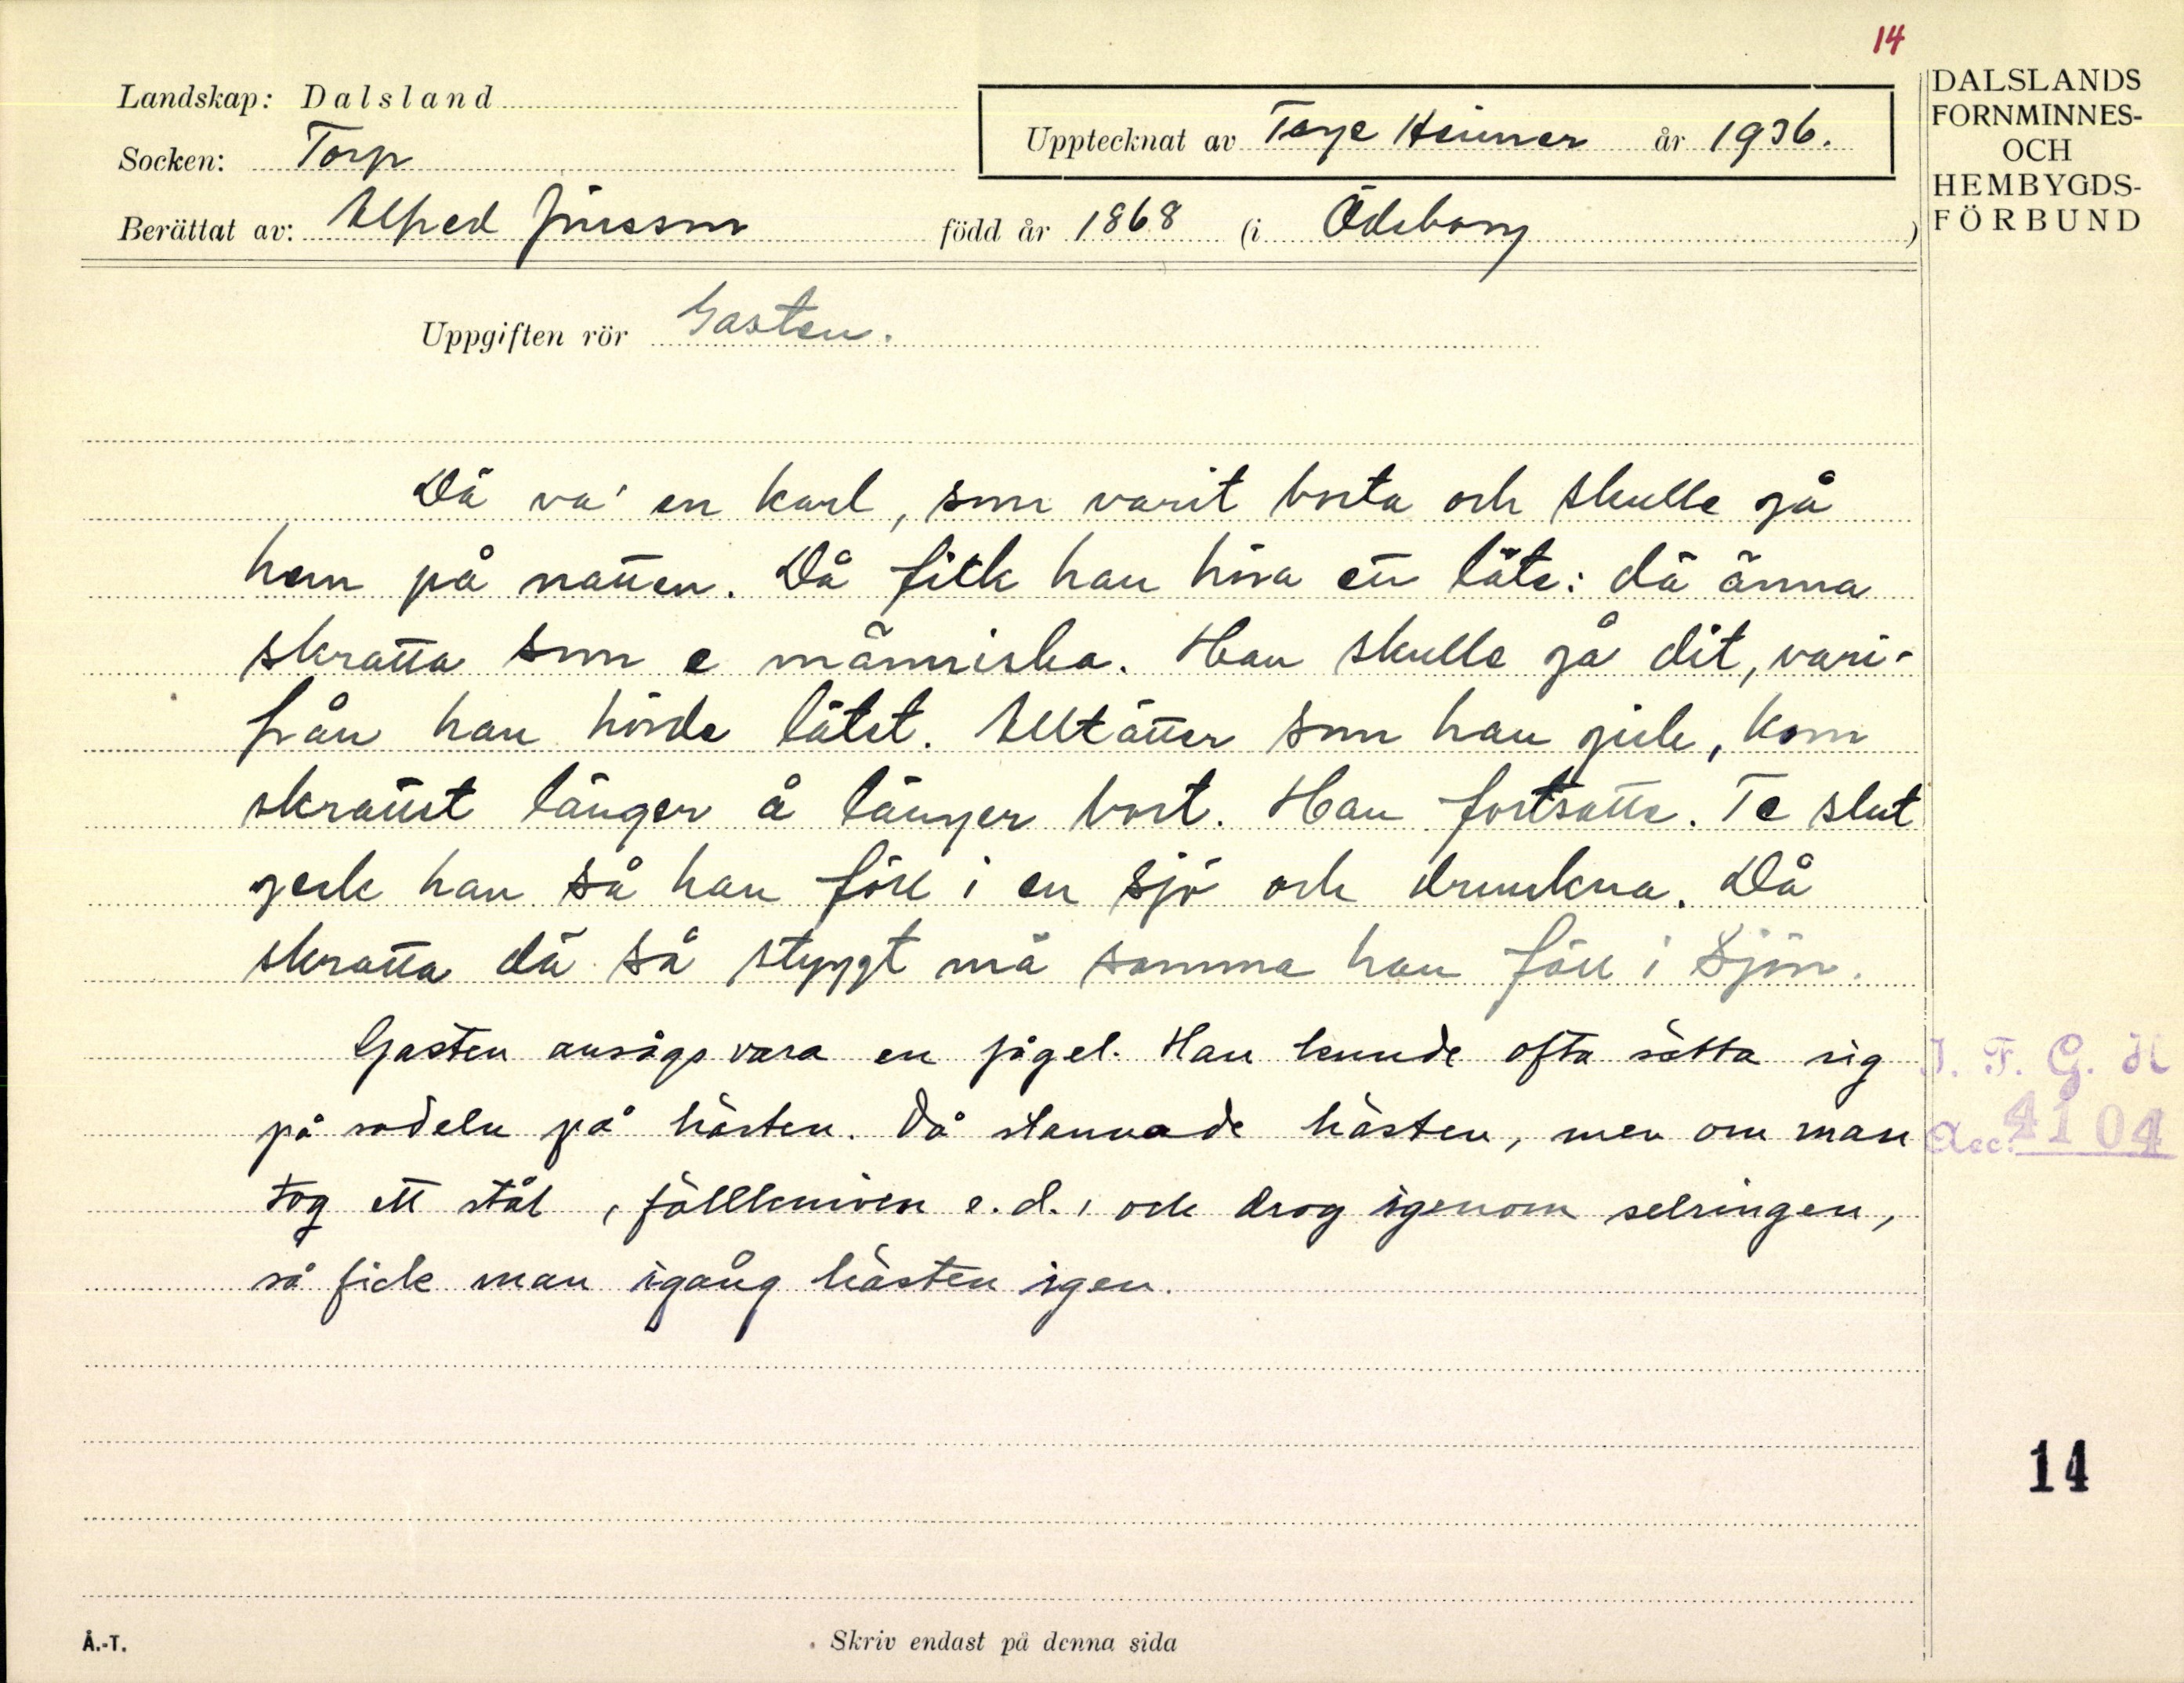 14
Landskap: Dalsland
Socken: Torp
Upptecknat av Tage Heimer år 1936.
Berättat av: Alfred Jonsson född år 1868 (i Ödeborg)
DALSLANDS
FORNMINNES-
OCH
HEMBYGDS-
FÖRBUND
Uppgiften rör Gasten.
Dä va' en karl, som varit borta och skulle gå
hem på natten. Då fick han höra ett läte: dä änna
skratta som e människa. Han skulle gå dit, vari-
från han hörde lätet. Alltätter som han gick, kom
skrattet länger å länger bort. Han fortsatte. Te slut
geck han så han föll i en sjö och drunkna. Då
skratta dä så styggt mä samma han föll i sjön.
Gasten ansågs vara en fågel. Han kunde ofta sätta sig
på sadeln på hästen. Då stannade hästen, men om man
tog ett stål, fällkniven e.d., och drog igenom selringen,
så fick man igång hästen igen.
I. F. G. H
Acc. 4104
14
Å.-T.
Skriv endast på denna sida